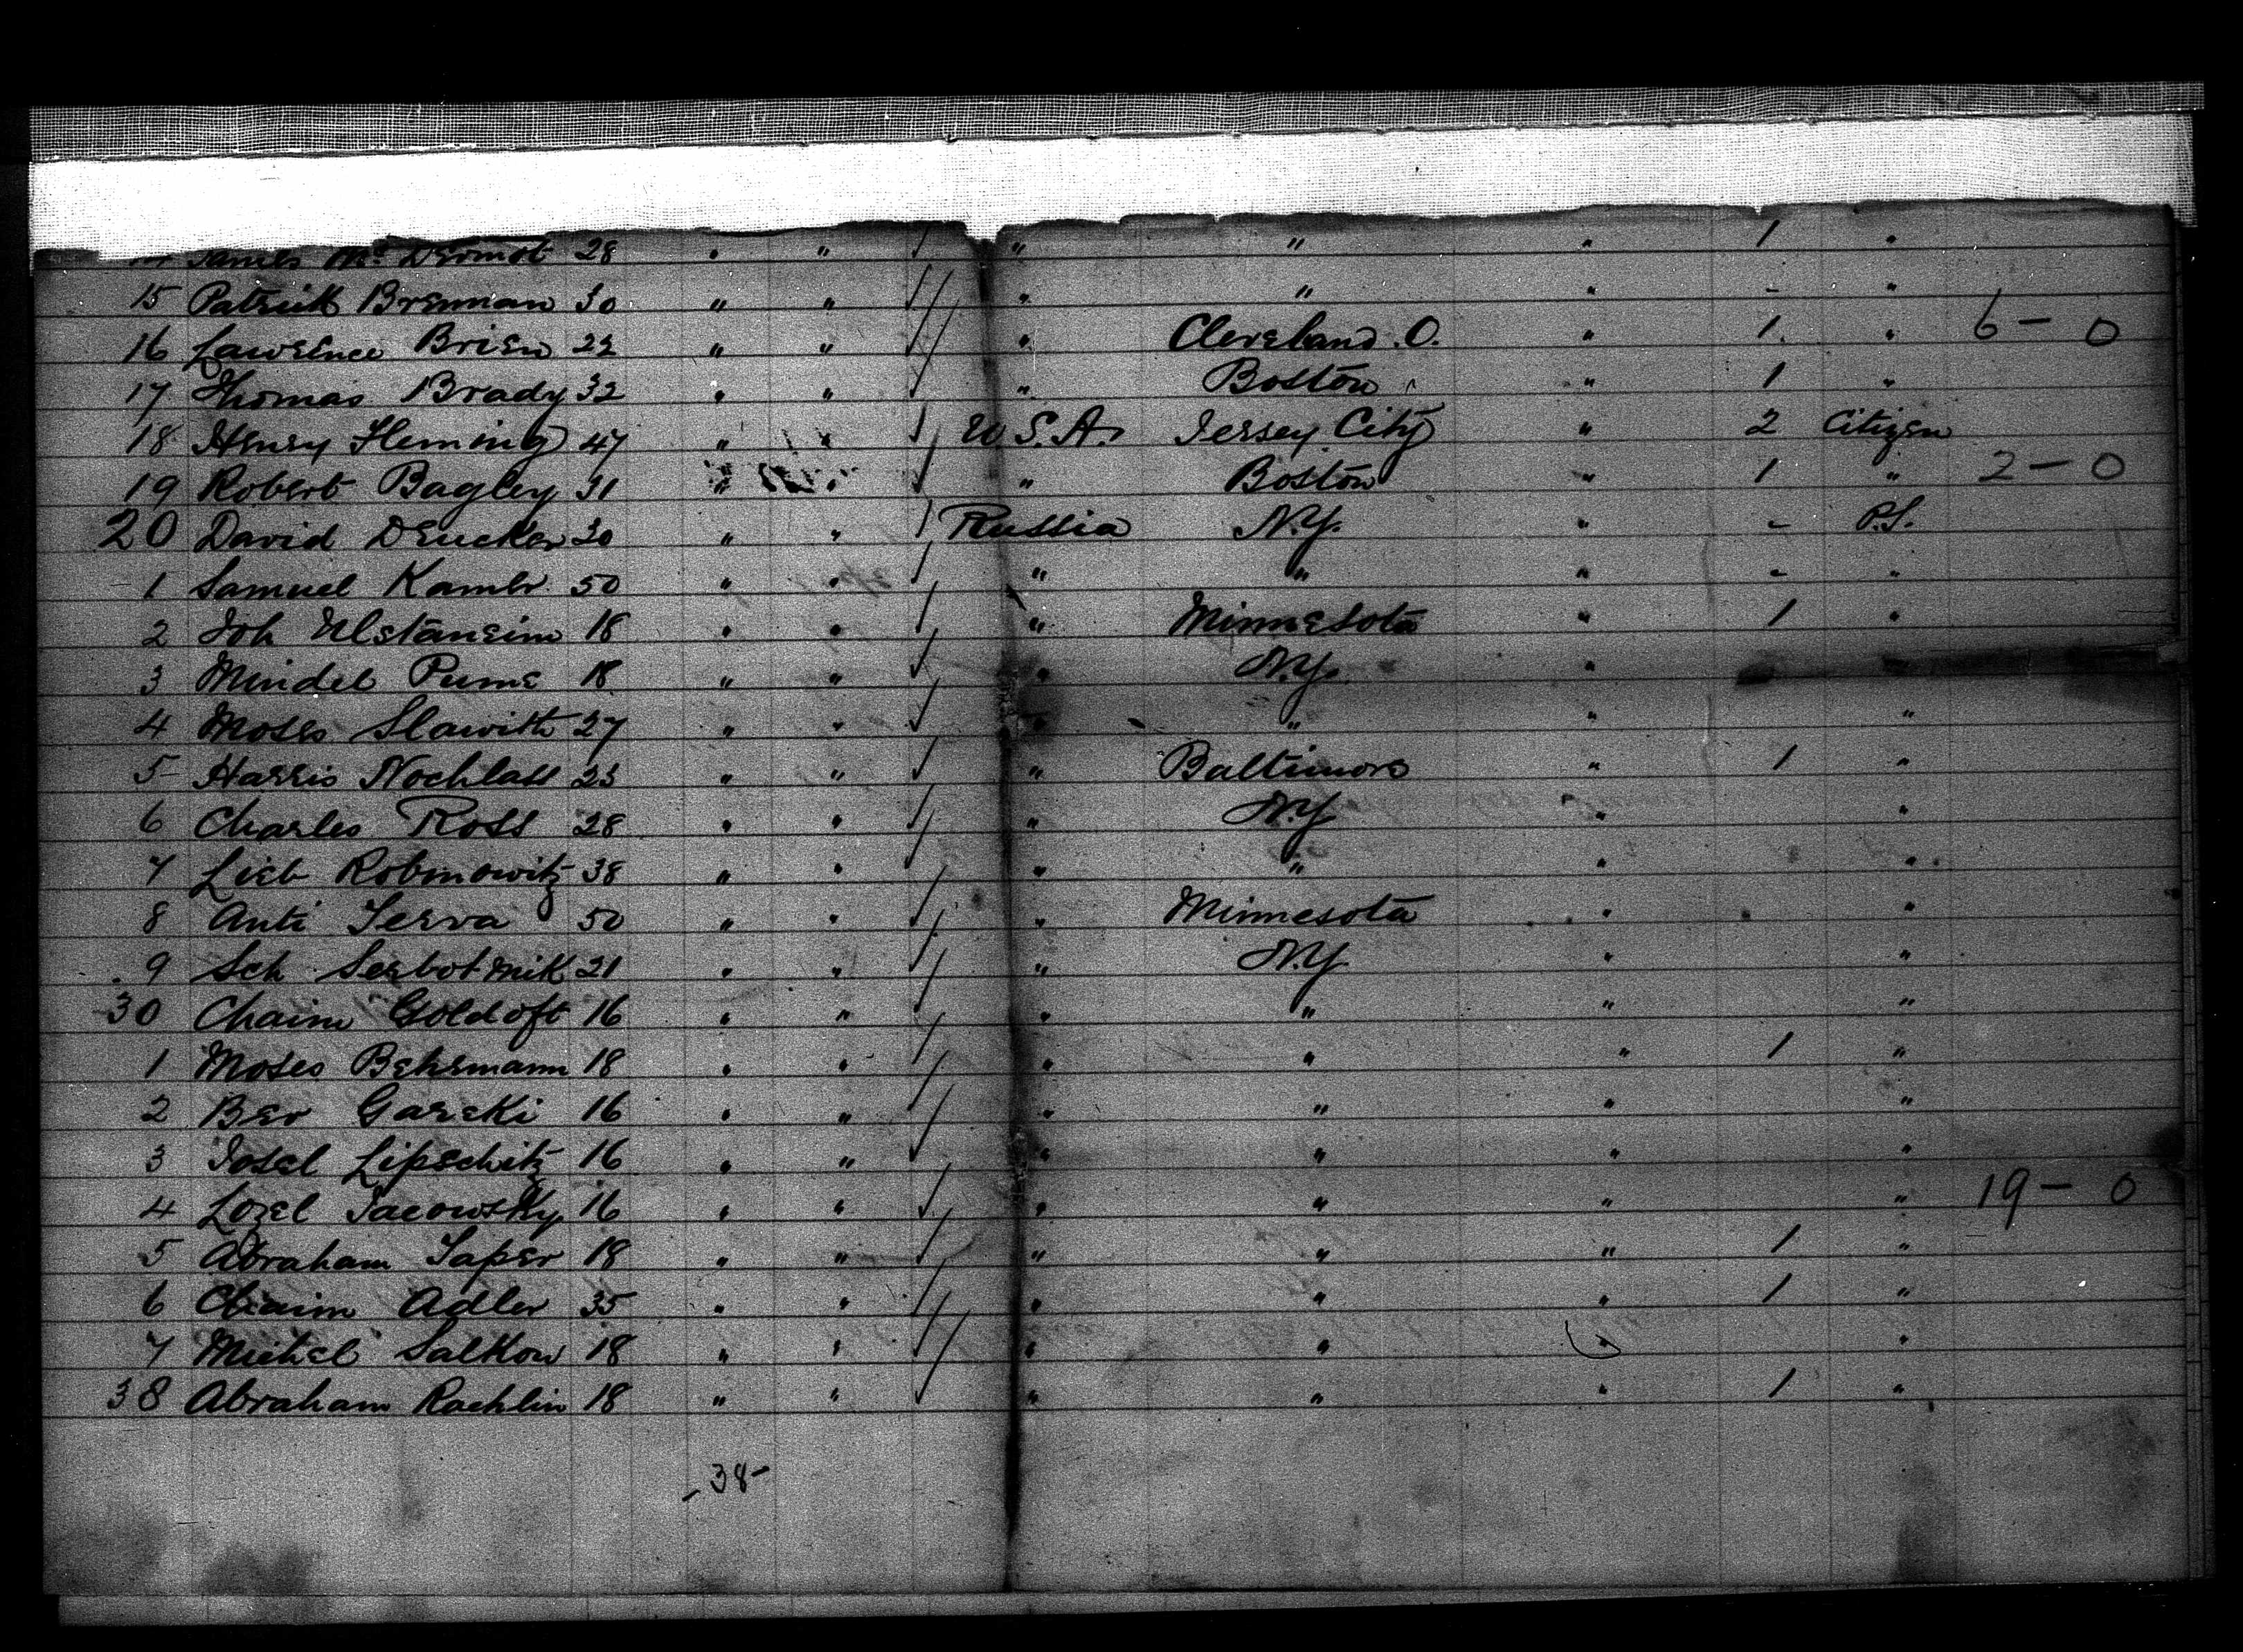 James Mc Dermot 28 " " " " " 1 "
15 Patrick Brennan 30 " " " " " - "
16 Lawrence Brien 22 " " " Cleveland .O. " 1. " 6 - 0
17 Thomas Brady 32 " " " Boston " 1 "
18 Henry Fleming 47 " " U S.A. Jersey City " 2 Citizen
19 Robert Bagley 31 " " " Boston " 1 " 2 - 0
20 David 30 " " Russia N.Y. " - P.S.
1 Samuel 50 " " " " " - "
2 18 " " " Minnesota " 1 "
3 Mindel 18 " " " N.Y. "
4 Moses Slawith 27 " " " " " "
5 Harris 23 " " " Baltimore " 1 "
6 Charles Ross 28 " " " N.Y " "
7 Lieb Robinowitz 38 " " " " " "
8 Anti Jerva 50 " " " Minnesota " "
9 Sch 21 " " " N.Y " "
30 Chaim Goldoft 16 " " " " " "
1 Moses Behrmann 18 " " " " " 1 "
2 Ber Garski 16 " " " " " "
3 Josel Lipschitz 16 " " " " " "
4 Lozel Jacowsky 16 " " " " " " 19 - 0
5 Abraham Japer 18 " " " " " 1 "
6 Chaim Adler 35 " " " " " 1 "
7 Michel Salkow 18 " " " " " "
38 Abraham Rachlin 18 " " " " " 1 "
- 38 -